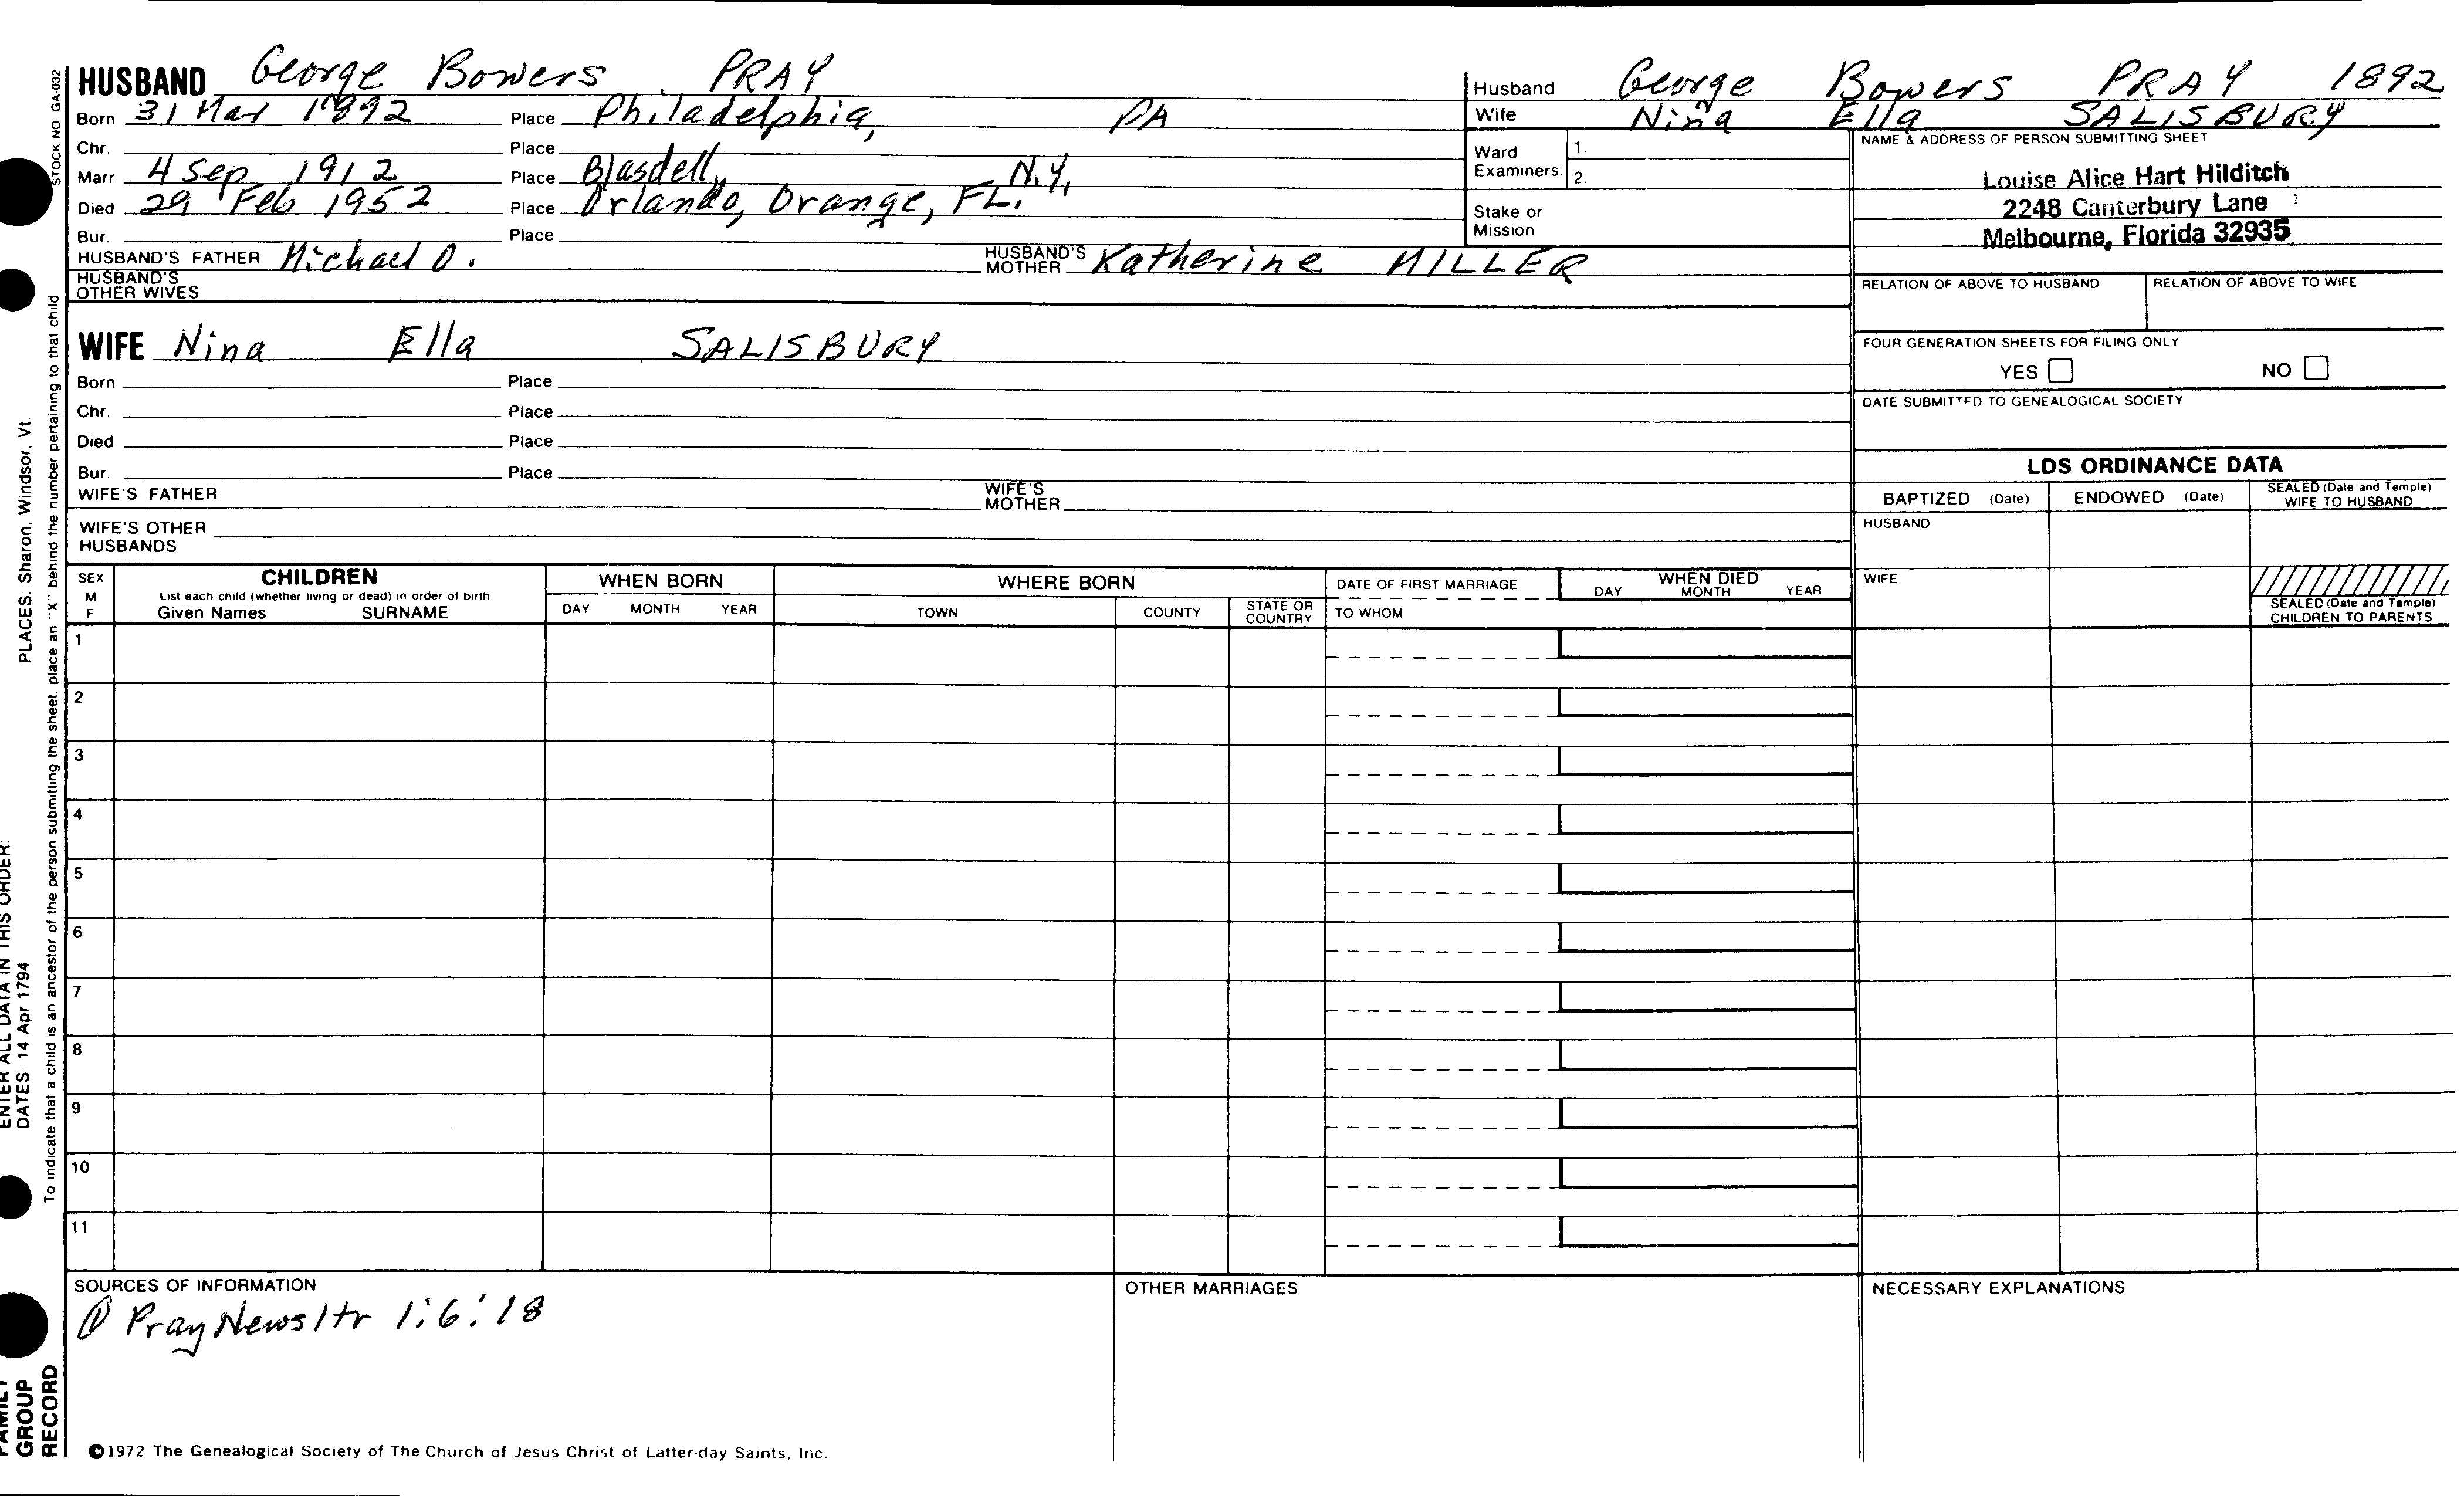 HUSBAND George Bowers PRAY
Born 31 Mar 1892 Place Philadelphia, PA
Chr. Place
Marr 4 Sep 1912 Place Blasdell, N.Y.
Died 29 Feb 1952 Place Orlando, Orange, FL.
Bur. Place
HUSBAND'S FATHER Michael O. HUSBAND'S MOTHER Katherine MILLER
HUSBAND'S OTHER WIVES
WIFE Nina Ella SALISBURY
Born Place
Chr. Place
Died Place
Bur. Place
WIFE'S FATHER WIFE'S MOTHER
WIFE'S OTHER HUSBANDS
Husband George Bowers PRAY 1892
Wife Nina Ella SALISBURY
Ward Examiners: 1.
2.
Stake or Mission
NAME & ADDRESS OF PERSON SUBMITTING SHEET
Louise Alice Hart Hilditch
2248 Canterbury Lane
Melbourne, Florida 32935
RELATION OF ABOVE TO HUSBAND RELATION OF ABOVE TO WIFE
FOUR GENERATION SHEETS FOR FILING ONLY
YES NO
DATE SUBMITTED TO GENEALOGICAL SOCIETY
LDS ORDINANCE DATA
BAPTIZED (Date) ENDOWED (Date) SEALED (Date and Temple) WIFE TO HUSBAND
HUSBAND
WIFE
SEALED (Date and Temple) CHILDREN TO PARENTS
SEX M F CHILDREN WHEN BORN WHERE BORN DATE OF FIRST MARRIAGE WHEN DIED
List each child (whether living or dead) in order of birth
Given Names SURNAME DAY MONTH YEAR TOWN COUNTY STATE OR COUNTRY TO WHOM DAY MONTH YEAR
1
2
3
4
5
6
7
8
9
10
11
SOURCES OF INFORMATION OTHER MARRIAGES NECESSARY EXPLANATIONS
① Pray Newsltr 1:6:18
©1972 The Genealogical Society of The Church of Jesus Christ of Latter-day Saints, Inc.
STOCK NO GA-032
To indicate that a child is an ancestor of the person submitting the sheet, place an "X" behind the number pertaining to that child
PLACES: Sharon, Windsor, Vt.
ENTER ALL DATA IN THIS ORDER:
DATES: 14 Apr 1794
FAMILY
GROUP
RECORD